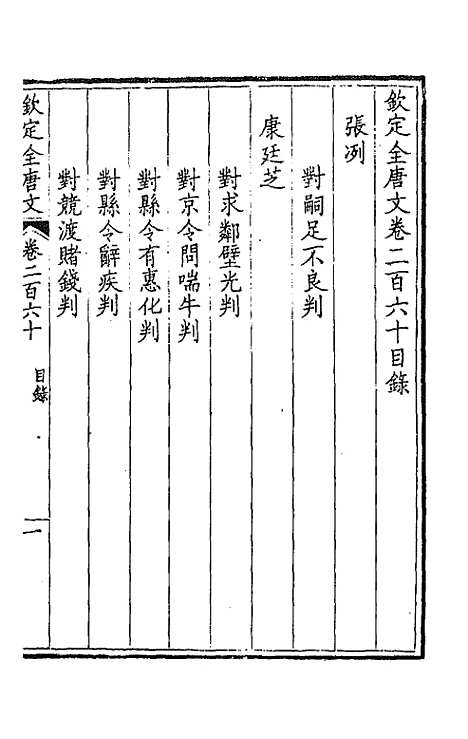 欽定全唐文卷二百六十目錄
張洌
對嗣足不良判
康廷芝
對求鄰壁光判
對京令問喘牛判
對縣令有惠化判
對縣令辭疾判
對競渡賭錢判
欽定全唐文 卷二百六十 目錄 一